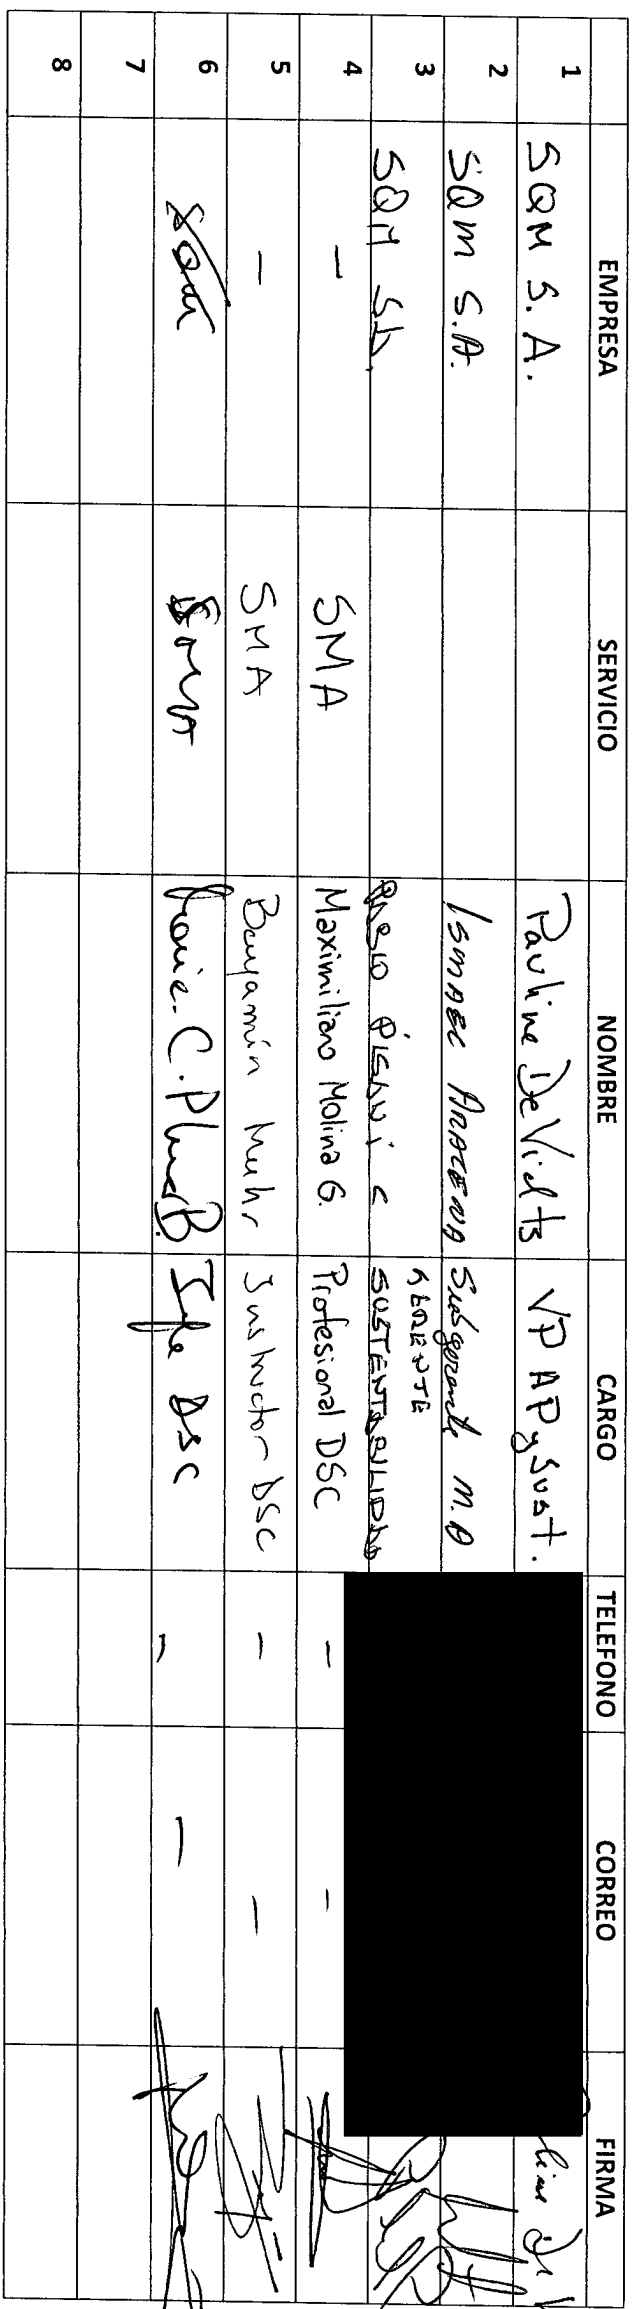 EMPRESA SERVICIO NOMBRE CARGO TELEFONO CORREO FIRMA
1 SQM S.A. Pauline De Vidts VP AP y Sust.
2 SQM S.A. ISMAEL ARACENA Subgerente M.A
3 SQM S.A. GERENTE SUSTENTABILIDAD
4 — SMA Maximiliano Molina G. Profesional DSC — —
5 — SMA Benjamín Muhr Instructor DSC — —
6 SMA C. Plumer B. Jefe DSC — —
7
8